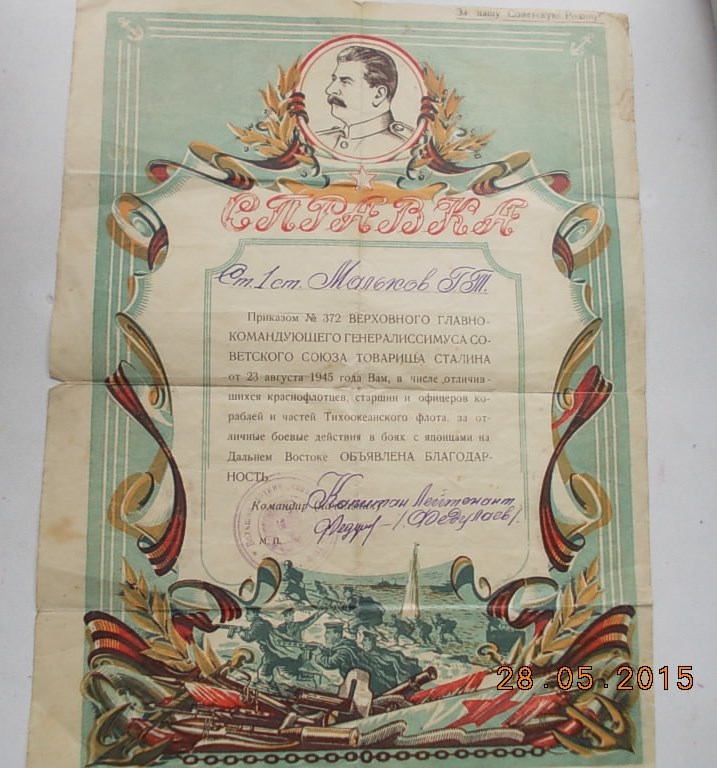 За нашу Советскую Родину!
СПРАВКА
Ст. 1 ст. Мальков Г.М.
Приказом № 372 ВЕРХОВНОГО ГЛАВНО-
КОМАНДУЮЩЕГО ГЕНЕРАЛИССИМУСА СО-
ВЕТСКОГО СОЮЗА ТОВАРИЩА СТАЛИНА
от 23 августа 1945 года Вам, в числе отличив-
шихся краснофлотцев, старшин и офицеров ко-
раблей и частей Тихоокеанского флота, за от-
личные боевые действия в боях с японцами на
Дальнем Востоке ОБЪЯВЛЕНА БЛАГОДАР-
НОСТЬ.
Командир Капитан Лейтенант
М. П.
28.05.2015